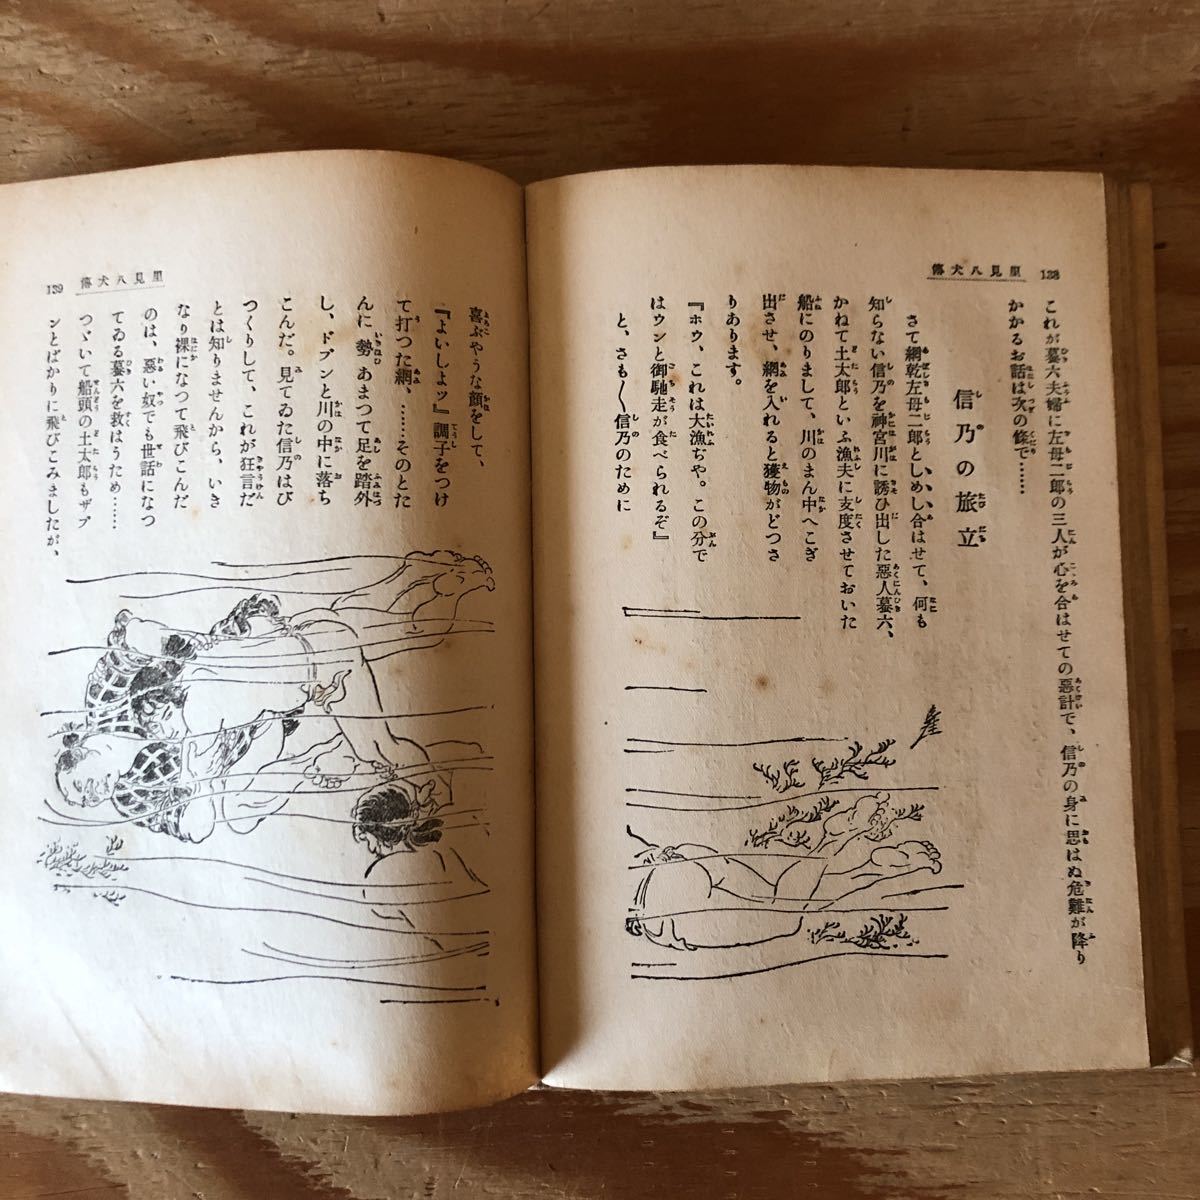 138 里見八犬傳
これが蟇六夫婦に左母二郎の三人が心を合はせての惡計で、信乃の身に思はぬ危難が降り
かかるお話は次の條で……
信乃の旅立
さて網乾左母二郎としめし合はせて、何も
知らない信乃を神宮川に誘ひ出した惡人蟇六、
かねて土太郎といふ漁夫に支度させておいた
船にのりまして、川のまん中へこぎ
出させ、網を入れると獲物がどつさ
りあります。
『ホウ、これは大漁ぢや。この分で
はウンと御馳走が食べられるぞ』
と、さも〱信乃のために
139 里見八犬傳
喜ぶやうな顏をして、
『よいしよッ』調子をつけ
て打つた網、……そのとた
んに勢あまつて足を踏外
し、ドブンと川の中に落ち
こんだ。見てゐた信乃はび
つくりして、これが狂言だ
とは知りませんから、いき
なり裸になつて飛びこんだ
のは、惡い奴でも世話になつ
てゐる蟇六を救はうため……
つゞいて船頭の土太郎もザブ
ンとばかりに飛びこみましたが、